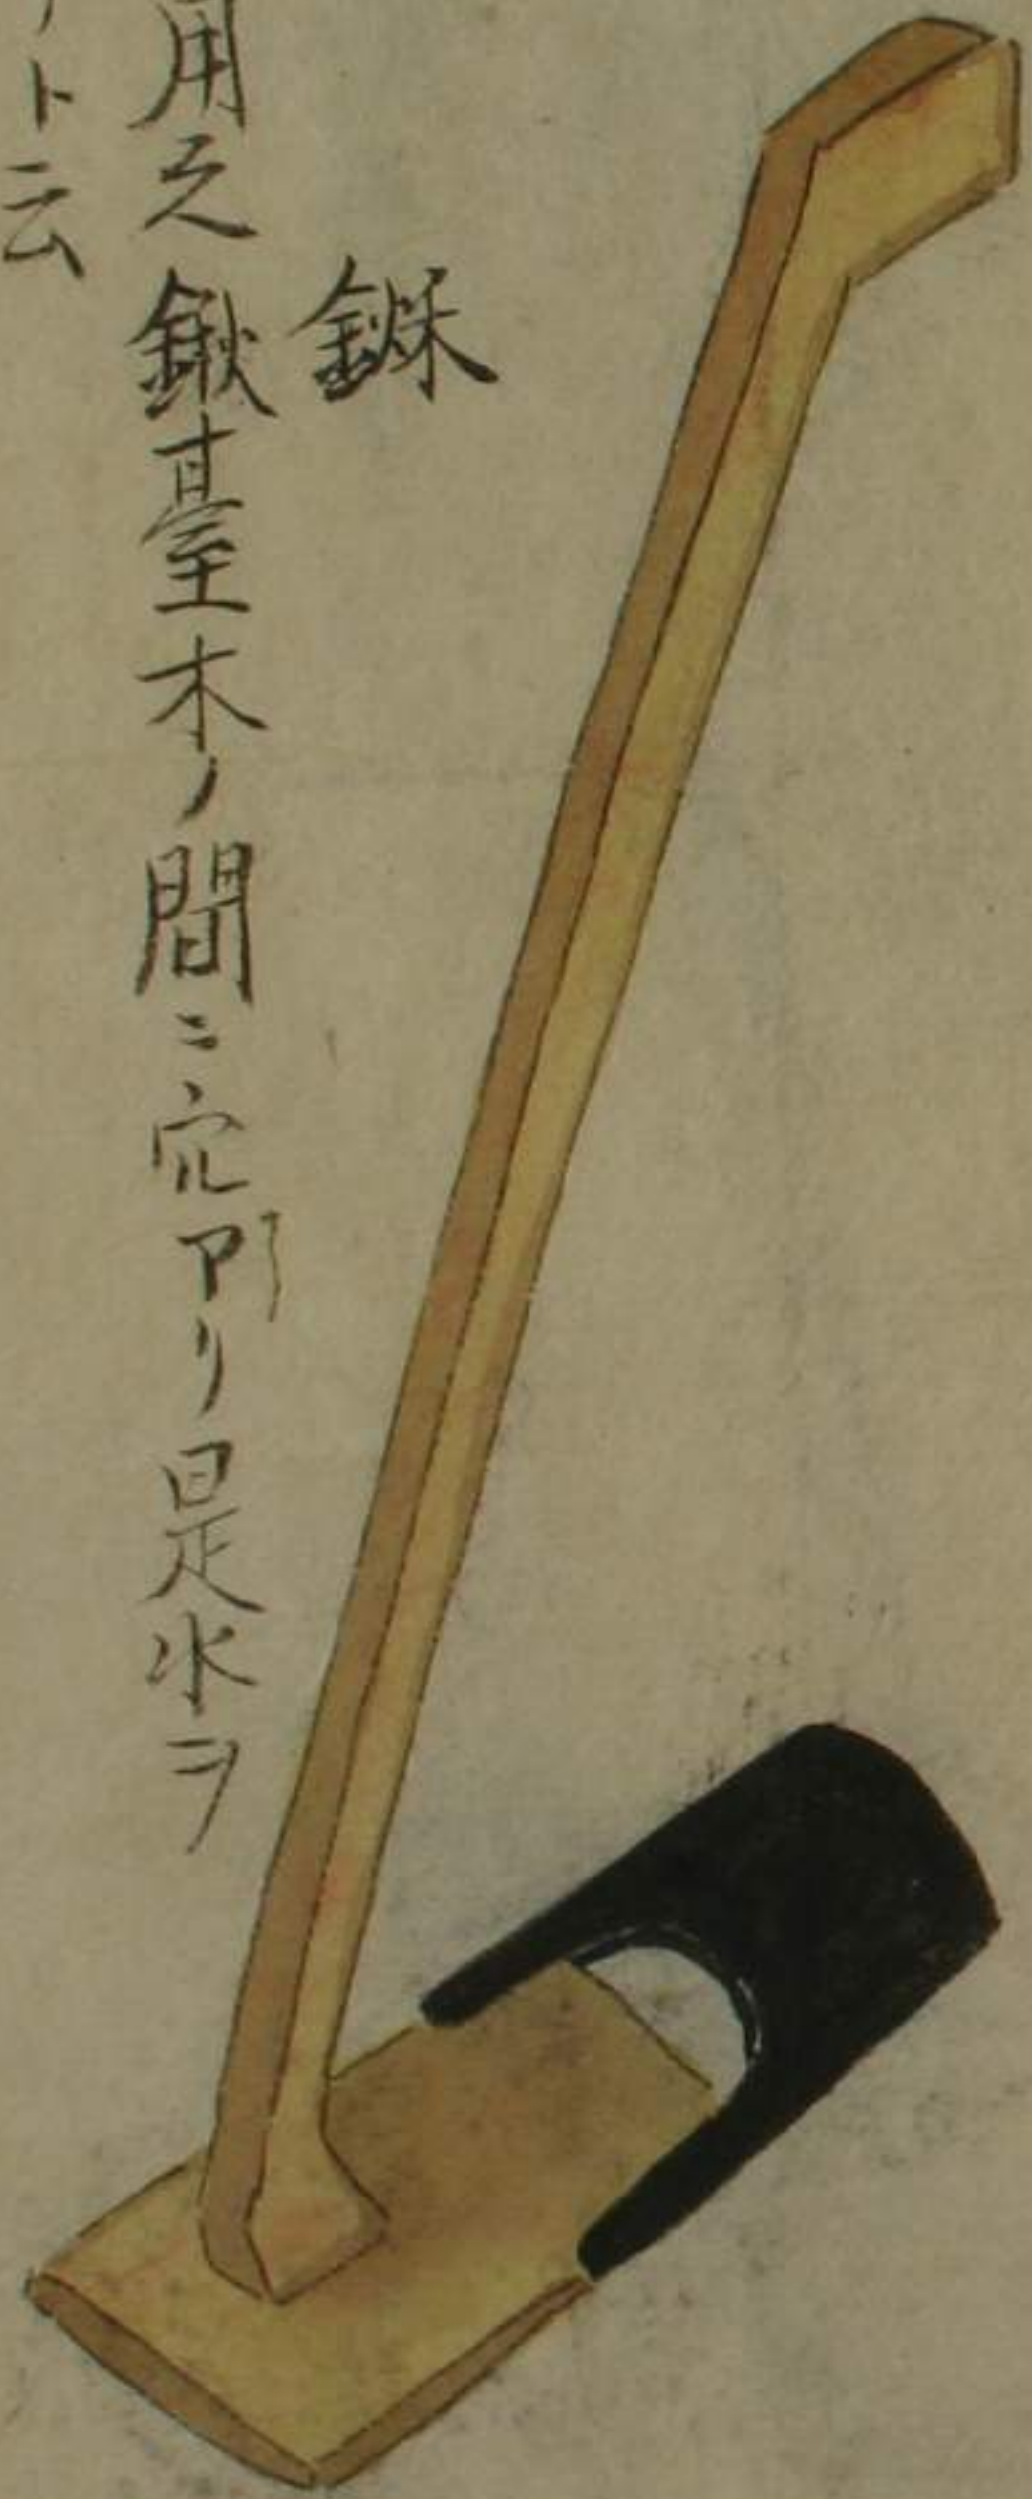 鍬
用之鍬臺木ノ間ニ穴アリ是水ヲ
ト云